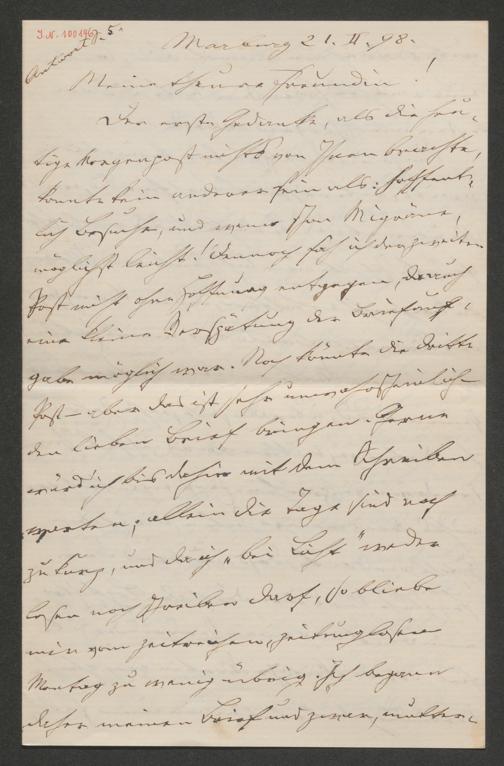 J.N. 100196
Antwort 5.
Marburg 21. II. 98.
Meine theure Freundin!
Der erste Gedanke, als die heu-
tige Morgenpost nichts von Ihnen brachte,
konnte kein anderer sein als: hoffent-
lich Besuche, und wenn schon Migräne,
möglichst leicht! Dennoch sah ich der zweiten
Post nicht ohne Hoffnung entgegen, da auch
eine kleine Verspätung der Briefauf-
gabe möglich war. Noch könnte die dritte
Post – aber das ist sehr unwahrscheinlich –
den lieben Brief bringen. Gerne
würd' ich bis dahin mit dem Schreiben
warten; allein die Tage sind noch
zu kurz, und da ich „bei Licht" weder
lesen noch schreiben darf, so bliebe
mir vom zeitreichen, zeitunglosen
Montag zu wenig übrig. Ich beginne
daher meinen Brief und zwar,